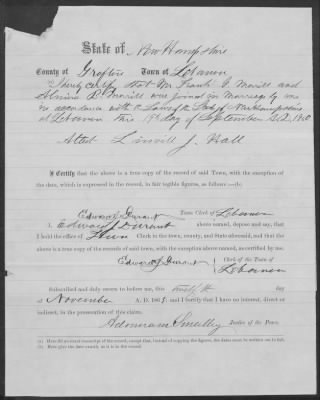 State of New Hampshire
County of Grafton Town of Lebanon
I hereby certify that Mr Frank P. Morrill and
Almira B. Morrill was joined in Marriage by me
in accordance with the Laws of the State of New Hampshire
at Lebanon this 19th day of September A.D. 1860
Attest J. Hall
I Certify that the above is a true copy of the record of said Town, with the exception
of the date, which is expressed in the record, in fair legible figures, as follows:—(b)
Edward J. Durant Town Clerk of Lebanon
I, Edward J Durant above named, depose and say, that
I hold the office of Town Clerk in the town, county, and State aforesaid, and that
the above is a true copy of the records of said Town, with the exception above named, as certified by me.
Edward J. Durant Clerk of the Town
of Lebanon
Subscribed and duly sworn to before me, this twelfth day
of November A. D. 186 , and I certify that I have no interest, direct or
indirect, in the prosecution of this claim.
Adoniram Smalley Justice of the Peace.
(a) Here fill an exact transcript of the record, except that, instead of copying the figures, the dates must be written out in full.
(b) Here give the date exactly, as it is in the record.